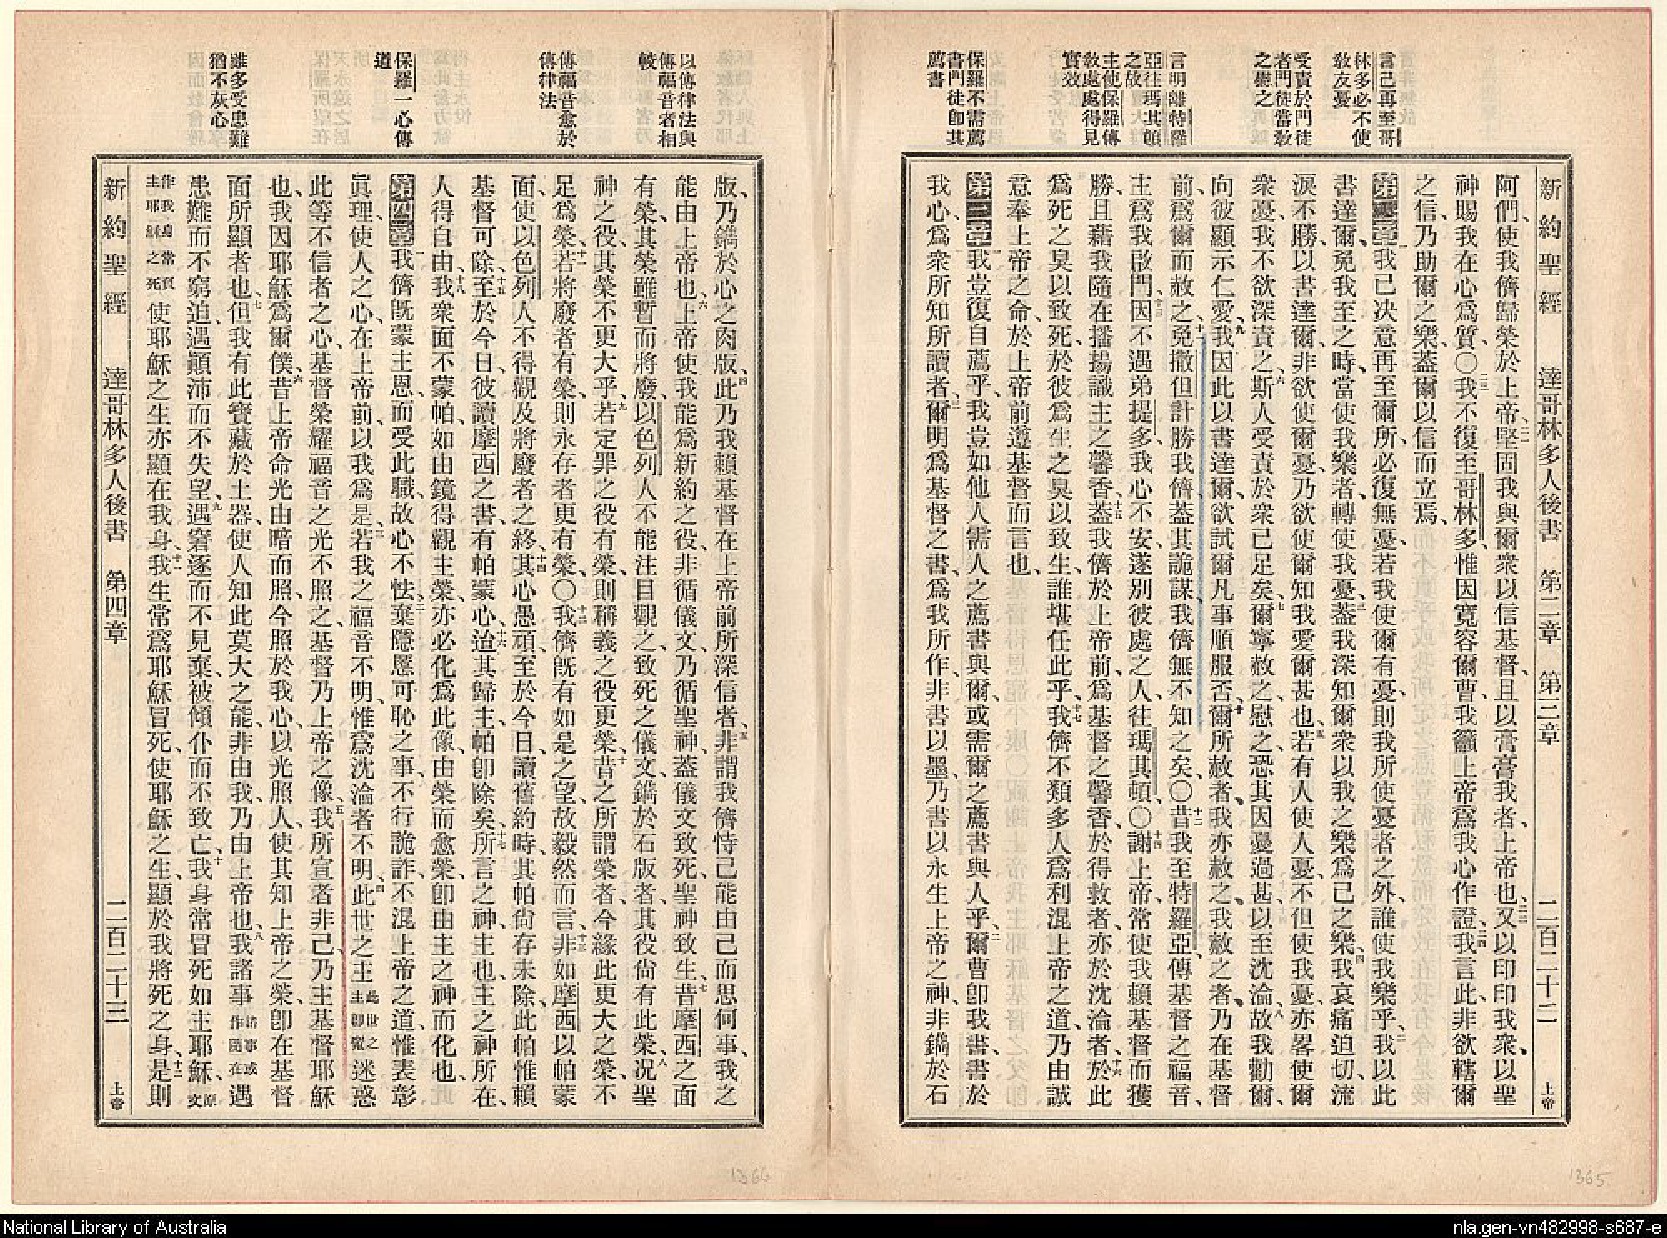 新約聖經 達哥林多人後書 第二章 第三章 二百二十二 上帝
言己再至哥
林多必不使
敎友憂
受責於門徒
者門徒當敎
之慰之
言明離特羅
亞往瑪其頓
之故
主使保羅傳
敎處處得見
實效
保羅不需薦
書門徒卽其
薦書
阿們、使我儕歸榮於上帝、堅固我與爾衆以信基督、且以膏膏我者、上帝也、又以印印我衆、以聖
神賜我在心爲質〇我不復至哥林多、惟因寬容爾曹、我籲上帝爲我心作證、我言此、非欲轄爾
之信、乃助爾之樂、蓋爾以信而立焉、
第二章我已決意再至爾所、必復無憂、若我使爾有憂、則我所使憂者之外、誰使我樂乎、我以此
書達爾、免我至之時、當使我樂者、轉使我憂、蓋我深知爾衆以我之樂爲己之樂、我哀痛迫切流
淚不勝、以書達爾、非欲使爾憂、乃欲使爾知我愛爾甚也、若有人使人憂、不但使我憂、亦畧使爾
衆憂、我不欲深責之、斯人受責於衆已足矣、爾寧赦之慰之、恐其因憂過甚、以至沈淪、故我勸爾、
向彼顯示仁愛、我因此以書達爾、欲試爾凡事順服否、爾所赦者、我亦赦之、我赦之者、乃在基督
前、爲爾而赦之、免撒但計勝我儕、蓋其詭謀、我儕無不知之矣〇昔我至特羅亞、傳基督之福音、
主爲我啟門、因不遇弟提多、我心不安、遂別彼處之人、往瑪其頓〇謝上帝、常使我賴基督而獲
勝、且藉我隨在播揚識主之馨香、蓋我儕於上帝前、爲基督之馨香、於得救者、亦於沈淪者、於此
爲死之臭以致死、於彼爲生之臭以致生、誰堪任此乎、我儕不類多人爲利混上帝之道、乃由誠
意、奉上帝之命、於上帝前、遵基督而言也、
第三章我豈復自薦乎、我豈如他人需人之薦書與爾、或需爾之薦書與人乎、爾曹卽我書、書於
我心、爲衆所知所讀者、爾明爲基督之書、爲我所作、非書以墨、乃書以永生上帝之神、非鐫於石
以傳律法與
傳福音者相
較
傳福音愈於
傳律法
保羅一心傳
道
雖多受患難
猶不灰心
版、乃鐫於心之肉版、此乃我賴基督在上帝前所深信者、非謂我儕恃己能由己而思何事、我之
能由上帝也、上帝使我能爲新約之役、非循儀文、乃循聖神、蓋儀文致死、聖神致生、昔摩西之面
有榮、其榮雖暫而將廢、以色列人不能注目觀之、致死之儀文、鐫於石版者、其役尙有此榮、况聖
神之役、其榮不更大乎、若定罪之役有榮、則稱義之役更榮、昔之所謂榮者、今緣此更大之榮、不
足爲榮、若將廢者有榮、則永存者更有榮〇我儕旣有如是之望、故毅然而言、非如摩西以帕蒙
面、使以色列人不得觀及將廢者之終、其心愚頑、至於今日、讀舊約時、其帕尙存未除、此帕惟賴
基督可除、至於今日、彼讀摩西之書、有帕蒙心、迨其歸主、帕卽除矣、所言之神、主也、主之神所在、
人得自由、我衆面不蒙帕、如由鏡得觀主榮、亦必化爲此像、由榮而愈榮、卽由主之神而化也、
第四章我儕旣蒙主恩、而受此職、故心不怯、棄隱慝可恥之事、不行詭詐、不混上帝之道、惟表彰
眞理、使人之心在上帝前、以我爲是、若我之福音不明、惟爲沈淪者不明、此世之主此世之主卽魔迷惑
此等不信者之心、基督榮耀福音之光不照之、基督乃上帝之像、我所宣者非己、乃主基督耶穌
也、我因耶穌爲爾僕、昔上帝命光由暗而照、今照於我心、以光照人、使其知上帝之榮、卽在基督
面所顯者也、但我有此寶藏於土器、使人知此莫大之能、非由我、乃由上帝也、我諸事諸事或作隨在遇
患難、而不窮迫、遇顚沛、而不失望、遇窘逐、而不見棄、被傾仆、而不致亡、我身常冒死如主耶穌、原文
作我身常負主耶穌之死使耶穌之生、亦顯在我身、我生常爲耶穌冒死、使耶穌之生、顯於我將死之身、是則
新約聖經 達哥林多人後書 第四章 二百二十三 上帝
1366
1365
National Library of Australia
nla.gen-vn482998-s687-e